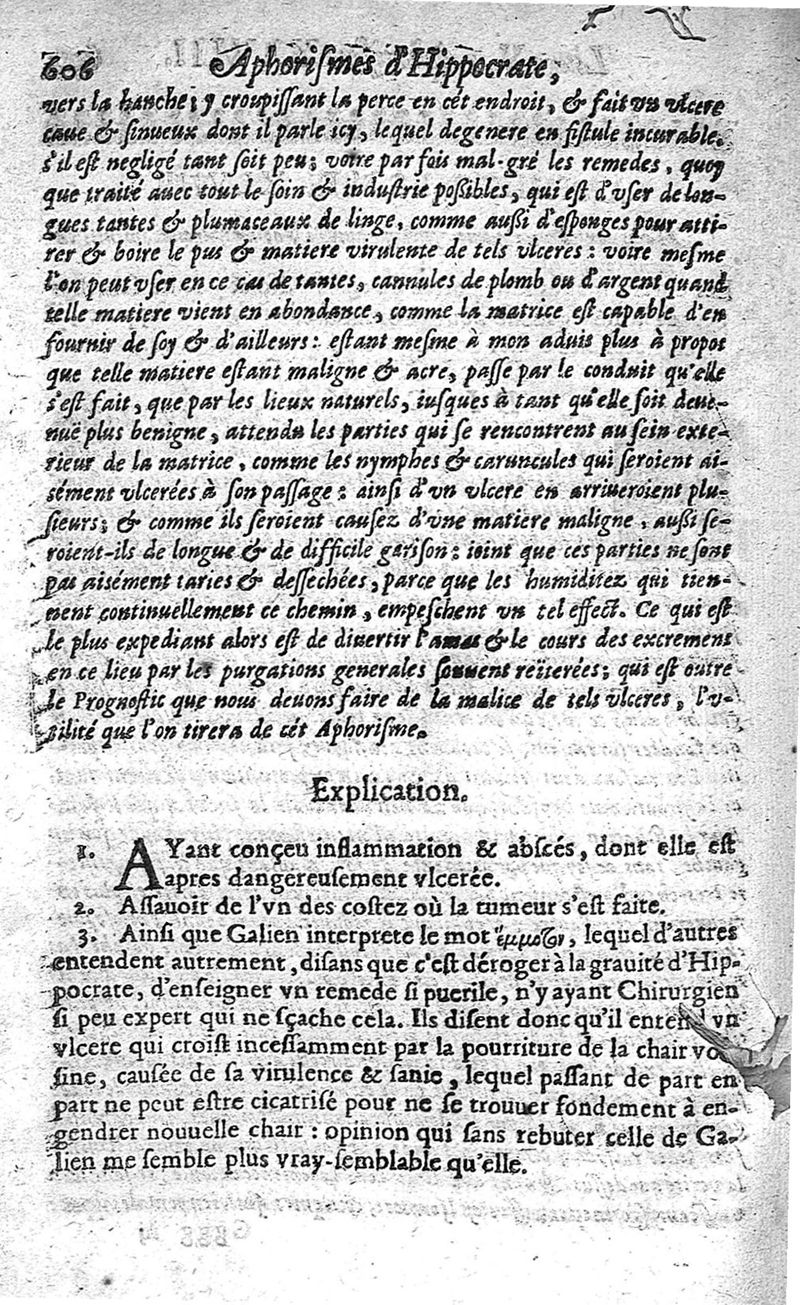 606 Aphoriſmes d'Hippocrate,
vers la hanche; y croupiſſant la perce en cét endroit, & fait vn vlcere
caue & ſinueux dont il parle icy, lequel degenere en fiſtule incurable,
s'il eſt negligé tant ſoit peu; voire par fois mal-gré les remedes, quoy
que traité avec tout le ſoin & induſtrie poſſibles, qui eſt d'vſer de lon-
gues tantes & plumaceaux de linge, comme auſſi d'eſponges pour atti-
rer & boire le pus & matiere virulente de tels vlceres: voire meſme
l'on peut vſer en ce cas de tantes, cannules de plomb ou d'argent quand
telle matiere vient en abondance, comme la matrice est capable d'en
fournir de ſoy & d'ailleurs: eſtant meſme à mon aduis plus à propos
que telle matiere eſtant maligne & acre, paſſe par le conduit qu'elle
s'eſt fait, que par les lieux naturels, iuſques à tant qu'elle ſoit deue-
nuë plus benigne, attendu les parties qui ſe rencontrent au ſein exte-
rieur de la matrice, comme les nymphes & caruncules qui ſeroient ai-
sément vlcerées à ſon paſſage: ainſi d'vn vlcere en arriueroient plu-
ſieurs; & comme ils ſeroient cauſez d'vne matiere maligne, auſſi ſe-
roient-ils de longue & de difficile gariſon: ioint que ces parties ne ſont
pas aisément taries & deſſechées, parce que les humiditez qui tien-
nent continuellement ce chemin, empeſchent vn tel effect. Ce qui eſt
le plus expediant alors eſt de diuertir l'amas & le cours des excremens
en ce lieu par les purgations generales ſouuent reïterées; qui eſt outre
le Prognoſtic que nous deuons faire de la malice de tels vlceres, l'v-
tilité que l'on tirera de cét Aphoriſme.
Explication.
1. AYant conçeu inflammation & abſcés, dont elle eſt
apres dangereuſement vlcerée.
2. Aſſauoir de l'vn des coſtez où la tumeur s'eſt faite.
3. Ainſi que Galien interprete le mot ἔμμοτοι, lequel d'autres
entendent autrement, diſans que c'eſt déroger à la grauité d'Hip-
pocrate, d'enſeigner vn remede ſi puerile, n'y ayant Chirurgien
ſi peu expert qui ne ſçache cela. Ils diſent donc qu'il entend vn
vlcere qui croiſt inceſſamment par la pourriture de la chair voi
ſine, cauſée de ſa virulence & ſanie, lequel paſſant de part en
part ne peut eſtre cicatriſé pour ne ſe trouuer fondement à en-
gendrer nouuelle chair: opinion qui ſans rebuter celle de Ga-
lien me ſemble plus vray-ſemblable qu'elle.